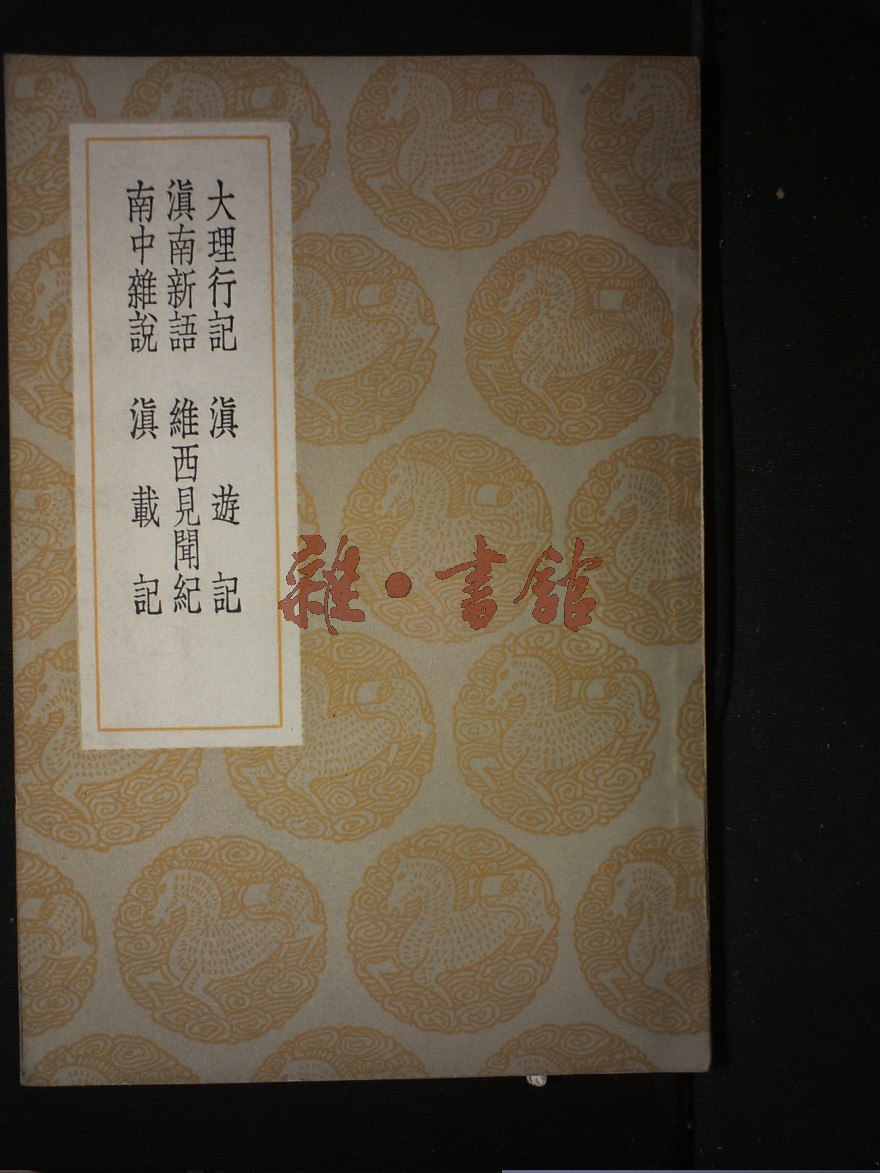 大理行記　滇遊記
滇南新語　維西見聞紀
南中雜說　滇載記
雜·書館